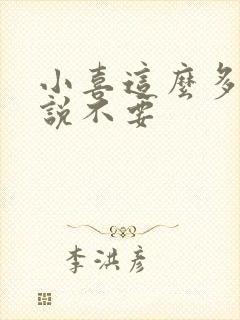 小喜這麼多
說不要
李洪彥